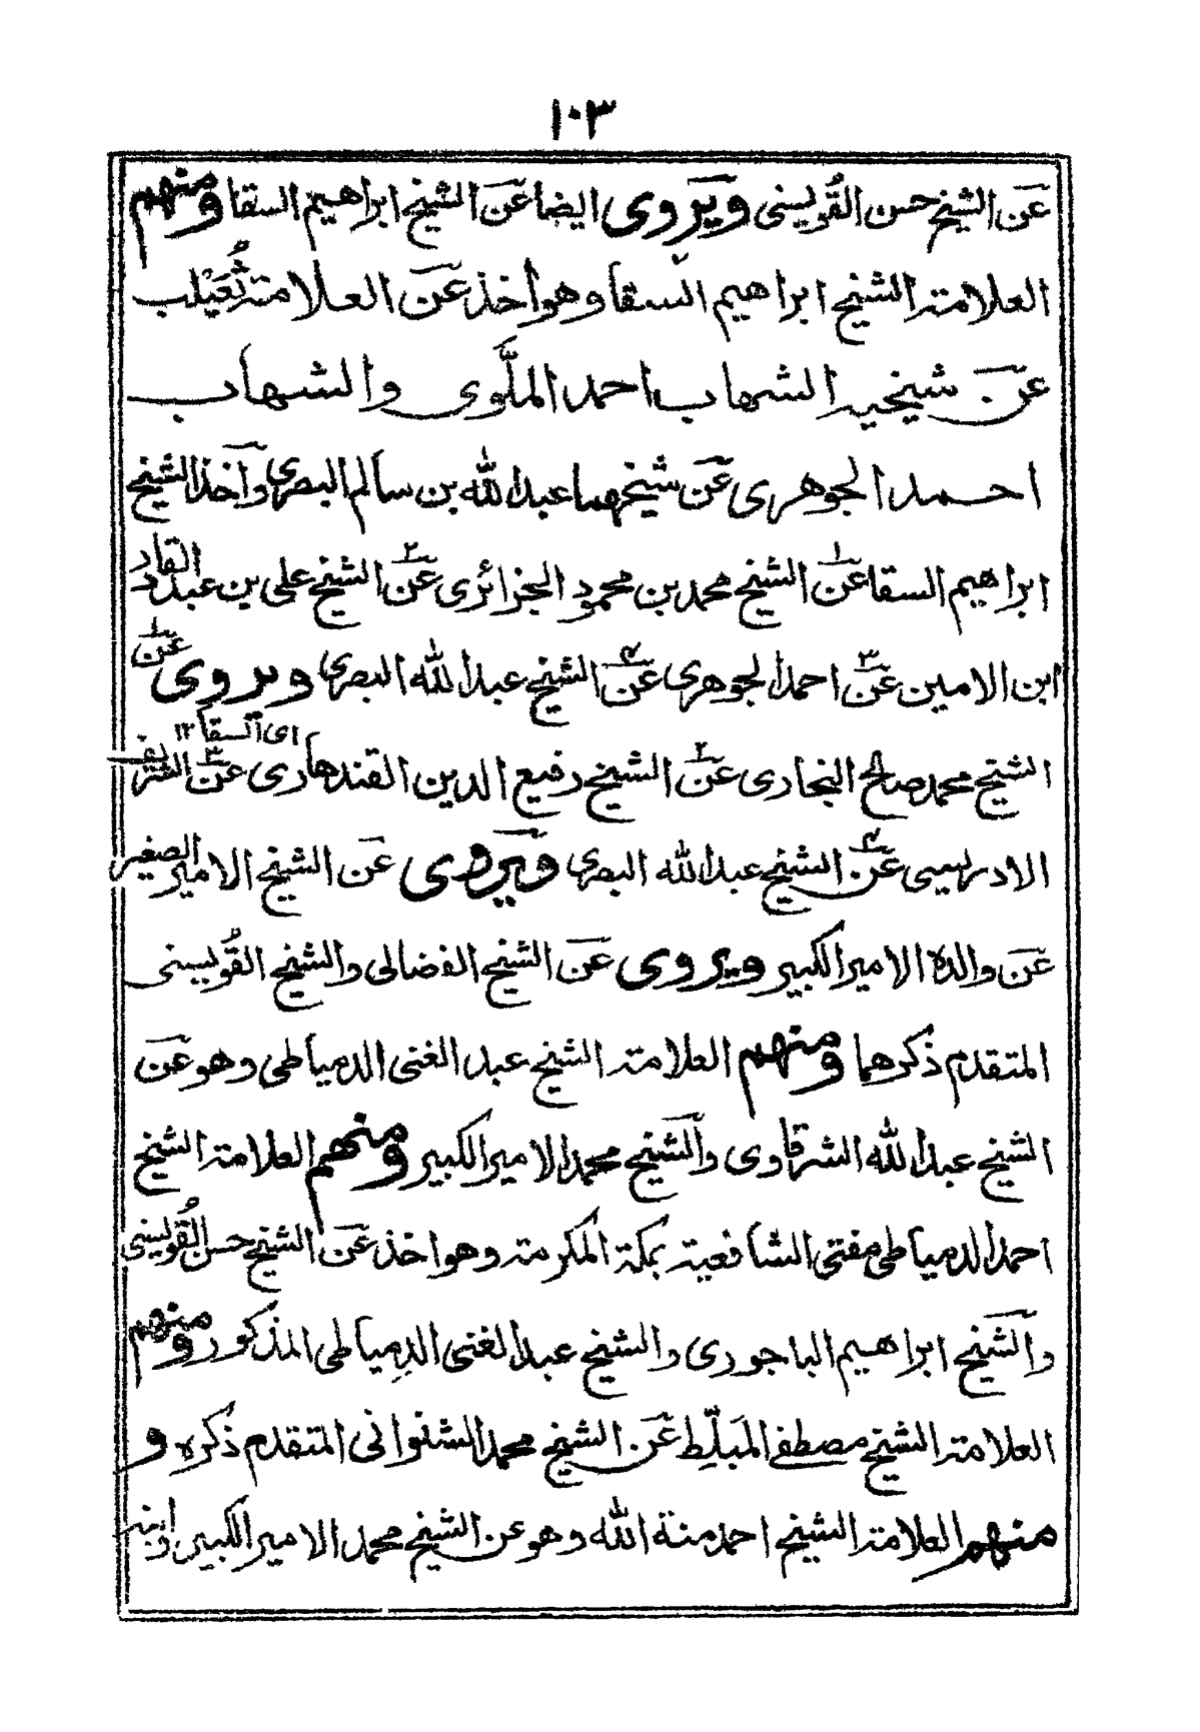 ١٠٣
عن الشيخ حسن القُوَيسنى ويروى ايضا عن الشيخ ابراهيم السقا ومنهم
العلامة الشيخ ابراهيم السقا وهو أخذ عن العلامة ثُعَيْلب
عن شيخيه الشهاب احمد الملَّوى والشهاب
احمد الجوهرى عن شيخهما عبد الله بن سالم البصرى وأخذ الشيخ
ابراهيم السقا عن١ الشيخ محمد بن محمود الجزائرى عن٢ الشيخ على بن عبد القادر
ابن الامين عن٣ احمد الجوهرى عن٤ الشيخ عبد الله البصرى ويروى عن١
اى السقا ١٢
الشيخ محمد صالح البخارى عن٢ الشيخ رفيع الدين القندهارى عن٣ الشريف
الادريسى عن٤ الشيخ عبد الله البصرى ويروى عن الشيخ الامير الصغير
عن والده الامير الكبير ويروى عن الشيخ الفضالى والشيخ القُويسنى
المتقدم ذكرهما ومنهم العلامة الشيخ عبد الغنى الدمياطى وهو عن
الشيخ عبد الله الشرقاوى والشيخ محمد الامير الكبير ومنهم العلامة الشيخ
احمد الدمياطى مفتى الشافعية بمكة المكرمة وهو اخذ عن الشيخ حسن القُويسنى
والشيخ ابراهيم الباجورى والشيخ عبد الغنى الدمياطى المذكور ومنهم
العلامة الشيخ مصطفى المبَلِّط عن الشيخ محمد الشنوانى المتقدم ذكره و
منهم العلامة الشيخ احمد منة الله وهو عن الشيخ محمد الامير الكبير وابنه